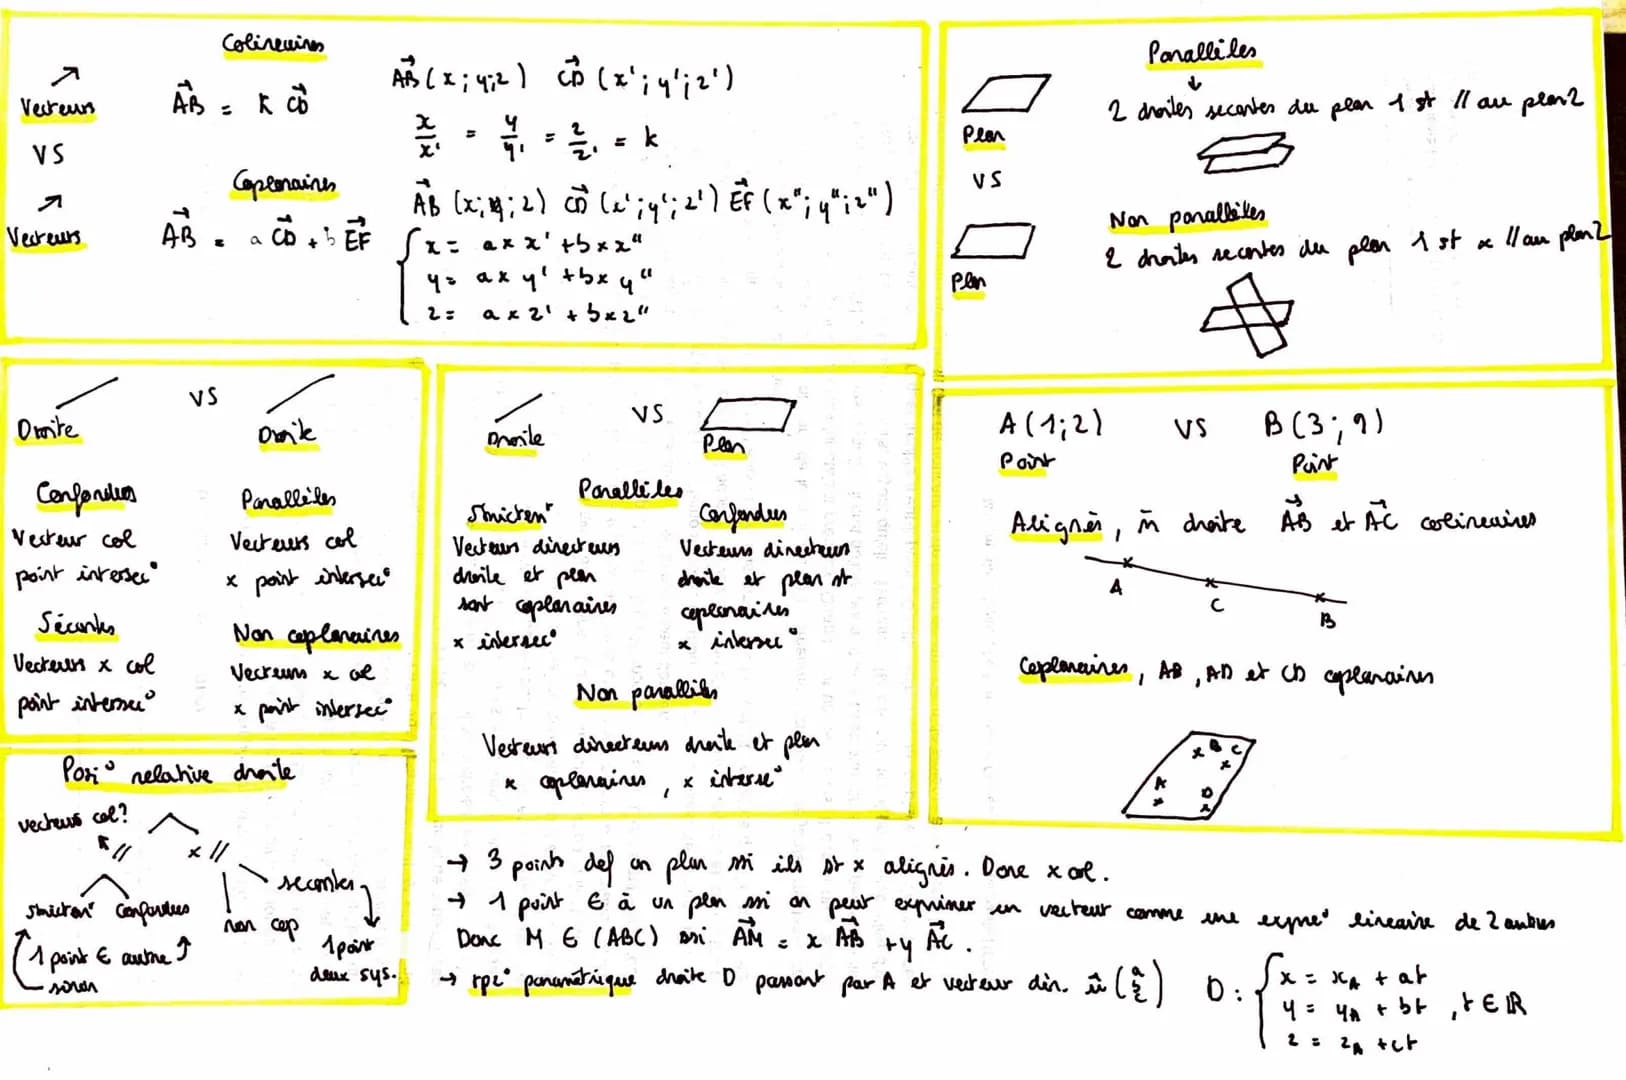 Colineaires
Vecteurs
VS
Vecteurs
AB = k CD
AB (x ; y ; z) CD (x' ; y' ; z')
x/x' = y/y' = z/z' = k
Coplanaires
AB = a CD + b EF
AB (x ; y ; z) CD (x' ; y' ; z') EF (x" ; y" ; z")
x = a x x' + b x x"
y = a x y' + b x y"
z = a x z' + b x z"
Plan
VS
Plan
Parallèles
↓
2 droites secantes du plan 1 st // au plan 2
Non parallèles
2 droites secantes du plan 1 st x // au plan 2
Droite VS Droite
Confondues
Vecteur col
point intersec°
Sécantes
Vecteurs x col
point intersec°
Parallèles
Vecteurs col
x point intersec°
Non coplanaires
Vecteurs x col
x point intersec°
Droite VS Plan
Parallèles
Stricten"
Vecteurs directeurs
droite et plan
sont coplanaires
x intersec°
Confondues
Vecteurs directeurs
droite et plan st
coplanaires
x intersec°
Non parallèles
Vecteurs directeurs droite et plan
x coplanaires, x interse°
A (1 ; 2) VS B (3 ; 9)
Point Point
Alignés, m̄ droite AB et AC colineaires
A
C
B
Coplanaires, AB, AD et CD coplanaires
B C
A
D
Posi° relative droite
vecteurs col?
// x //
stricten" Confondues
non cap
secantes
1 point
deux sys.
1 point ∈ autre
sinon
→ 3 points def un plan ssi ils st x alignés. Donc x col.
→ 1 point ∈ à un plan ssi on peut exprimer un vecteur comme une expre° lineaire de 2 autres
Donc M ∈ (ABC) ssi AM = x AB + y AC.
→ rpz° paramétrique droite D passant par A et vecteur dir. u (a b c)
D : x = xA + at
y = yA + bt , t ∈ ℝ
z = zA + ct